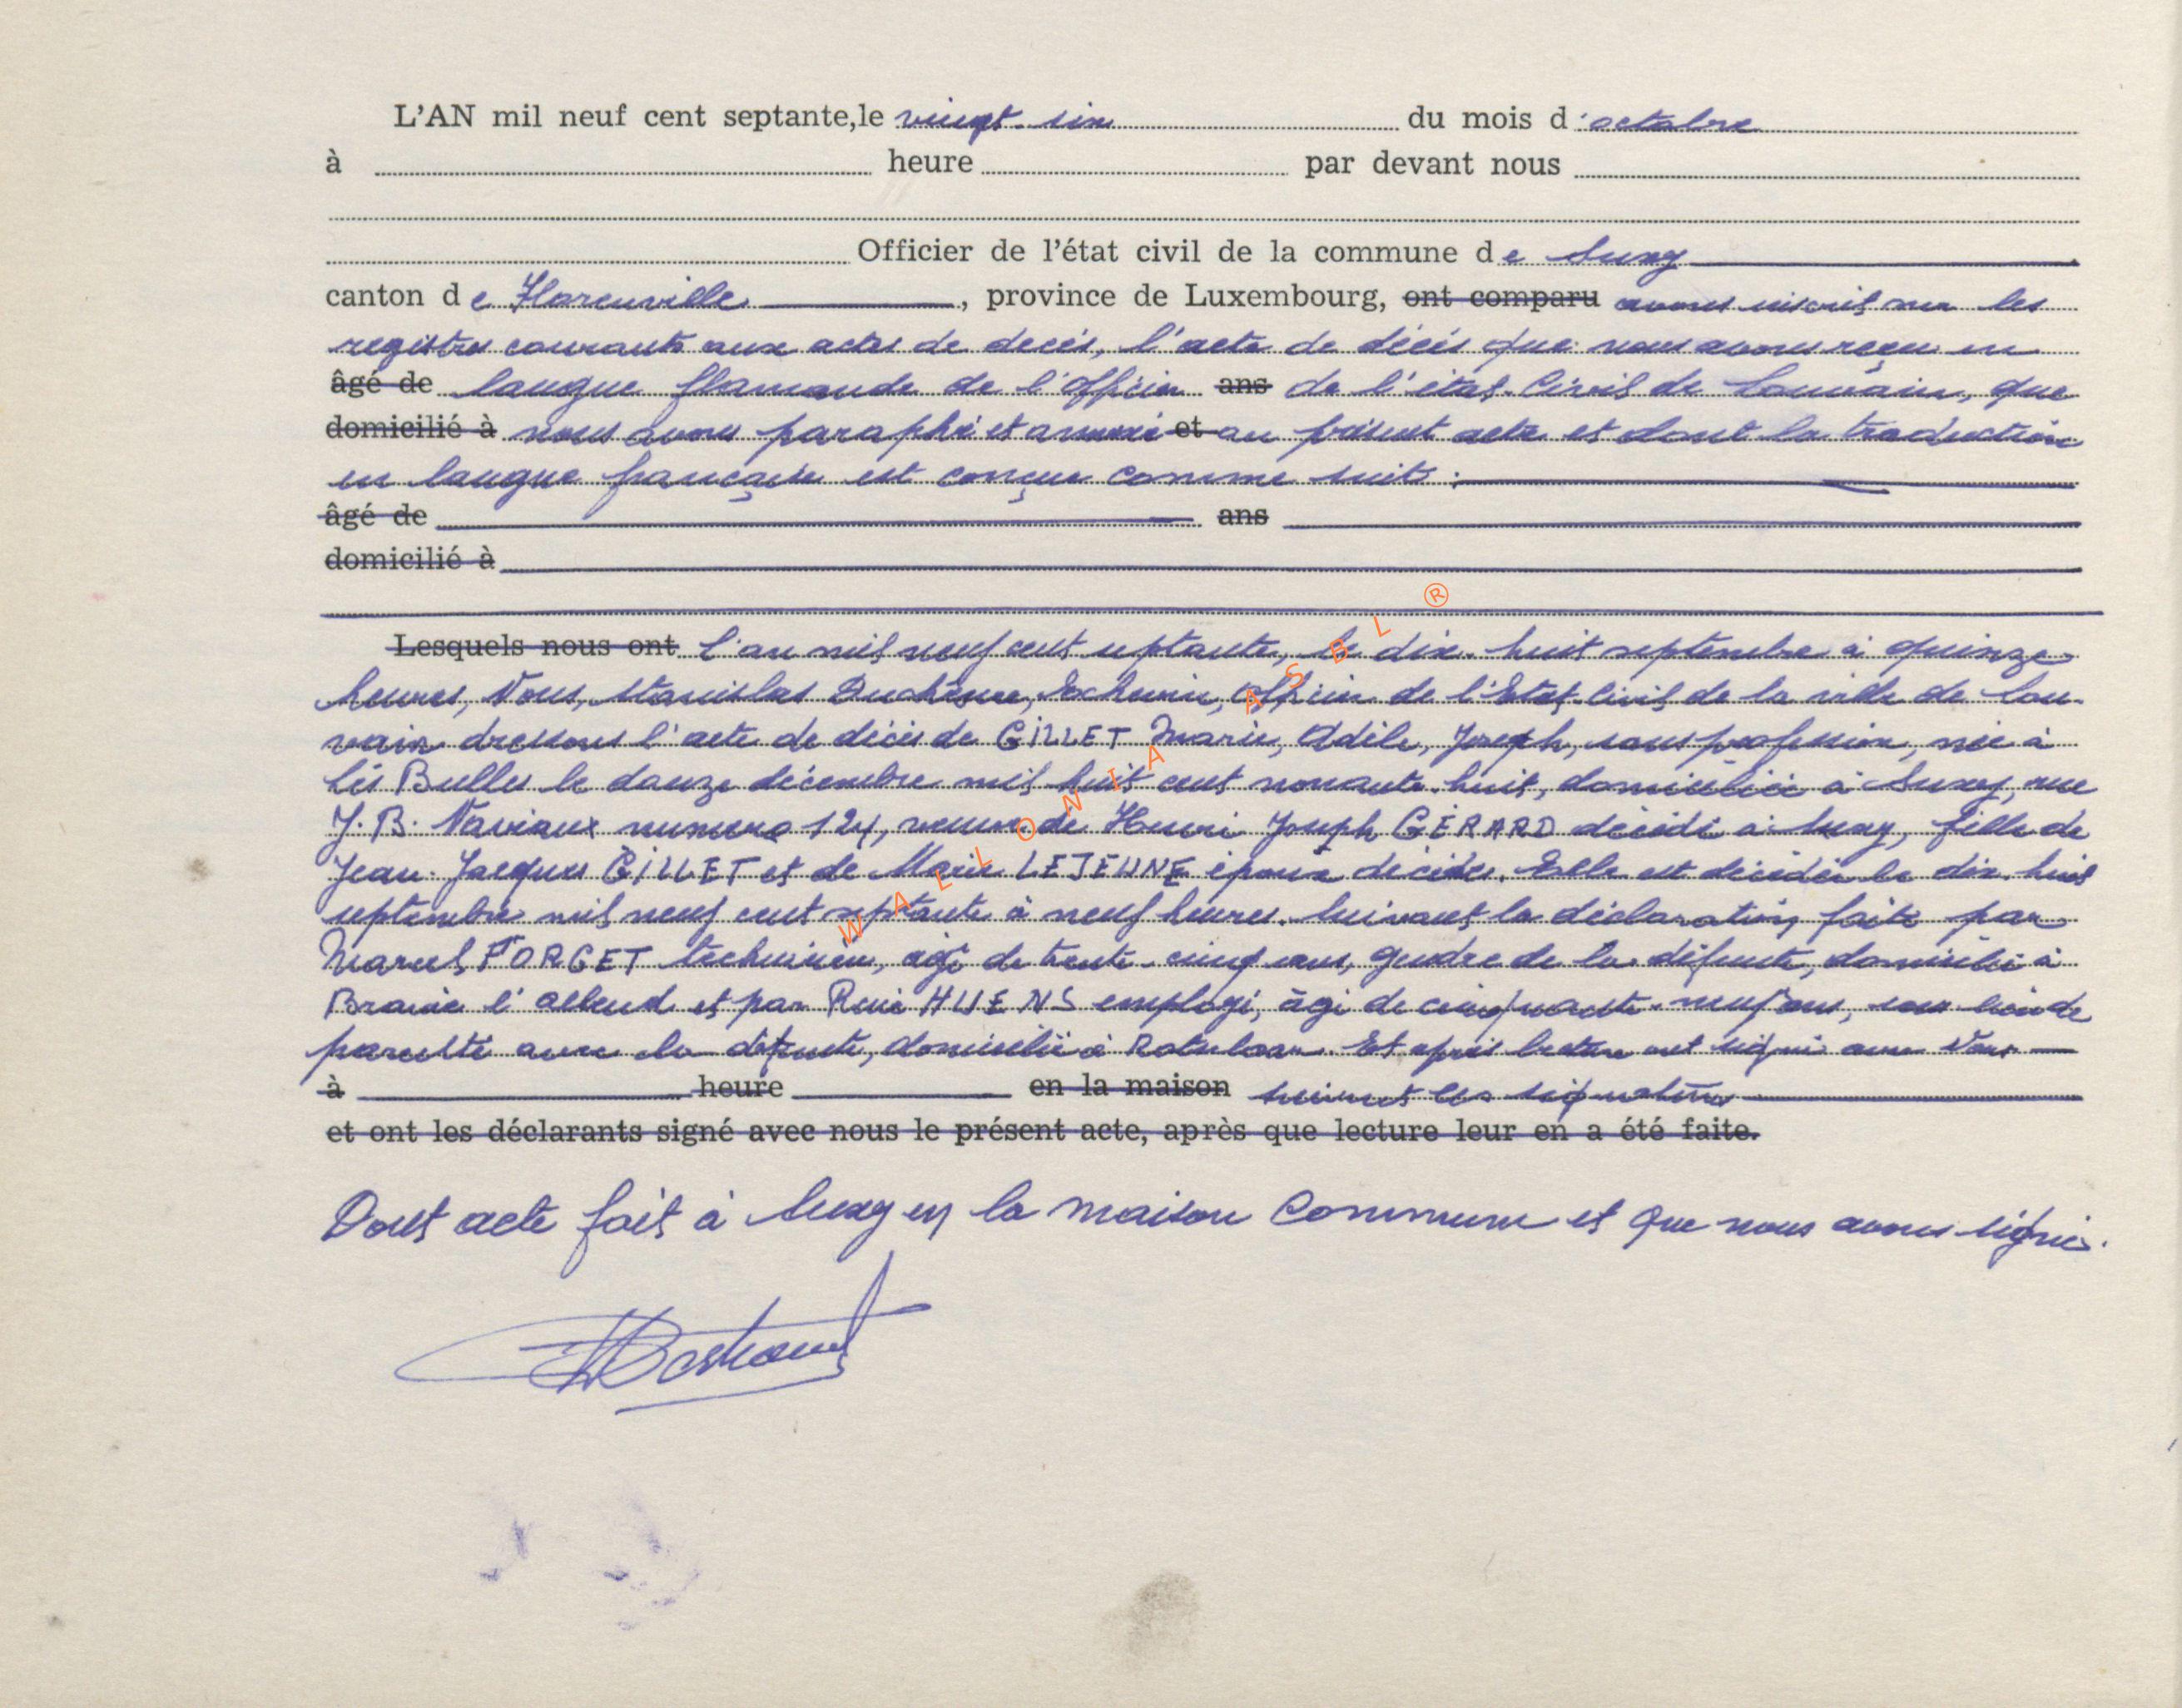 L'AN mil neuf cent septante, le vingt-six du mois d'octobre
à heure par devant nous
Officier de l'état civil de la commune de Suxy
canton de Florenville, province de Luxembourg, ont comparu avons inscrit sur les
registres courants aux actes de décès, l'acte de décès que nous avons reçu en
âgé de langue flamande de l'officier ans de l'état-Civil de Louvain, que
domicilié à nous avons paraphé et annexé et au présent acte et dont la traduction
en langue française est conçue comme suit :
âgé de ans
domicilié à
Lesquels nous ont l'an mil neuf cent septante, le dix-huit septembre à quinze
heures, Nous, Stanislas Duchêne, Echevin, Officier de l'Etat-Civil de la ville de Lou-
vain dressons l'acte de décès de GILLET Marie, Adèle, Joseph, sans profession, née à
Les Bulles le douze décembre mil huit cent nonante-huit, domiciliée à Suxy, rue
J.B. Naviaux numero 124, veuve de Henri Joseph GÉRARD décédé à Suxy, fille de
Jean-Jacques GILLET et de Marie LEJEUNE époux décédés. Elle est décédée le dix-huit
septembre mil neuf cent septante à neuf heures. Suivant la déclaration faite par
Marcel FORGET technicien, âgé de trente-cinq ans, gendre de la défunte, domicilié à
Braine l'alleud et par René HUENS employé, âgé de cinquante-neuf ans, sans lien de
parenté avec la défunte, domicilié à Rotselaar. Et après lecture ont signé avec Nous
à heure en la maison suivent les signatures
et ont les déclarants signé avec nous le présent acte, après que lecture leur en a été faite.
Dont acte fait à Suxy en la maison Commune et que nous avons signé.
WALLONIA ASBL ®